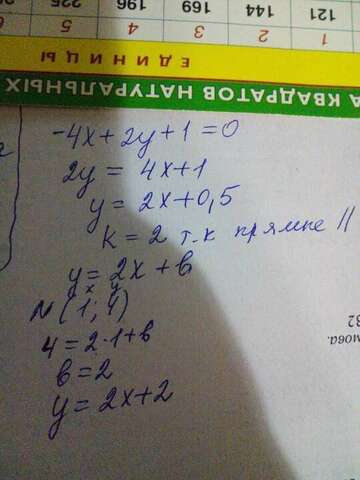 121 144 169 196 225
1 2 3 4 5 6
ЕДИНИЦЫ
А КВАДРАТОВ НАТУРАЛЬНЫХ
-4x+2y+1=0
2y = 4x+1
y = 2x+0,5
k = 2 т.к прямые ||
y = 2x + в
x y
N (1; 4)
4 = 2·1+в
в = 2
y = 2x+2
мова.
32